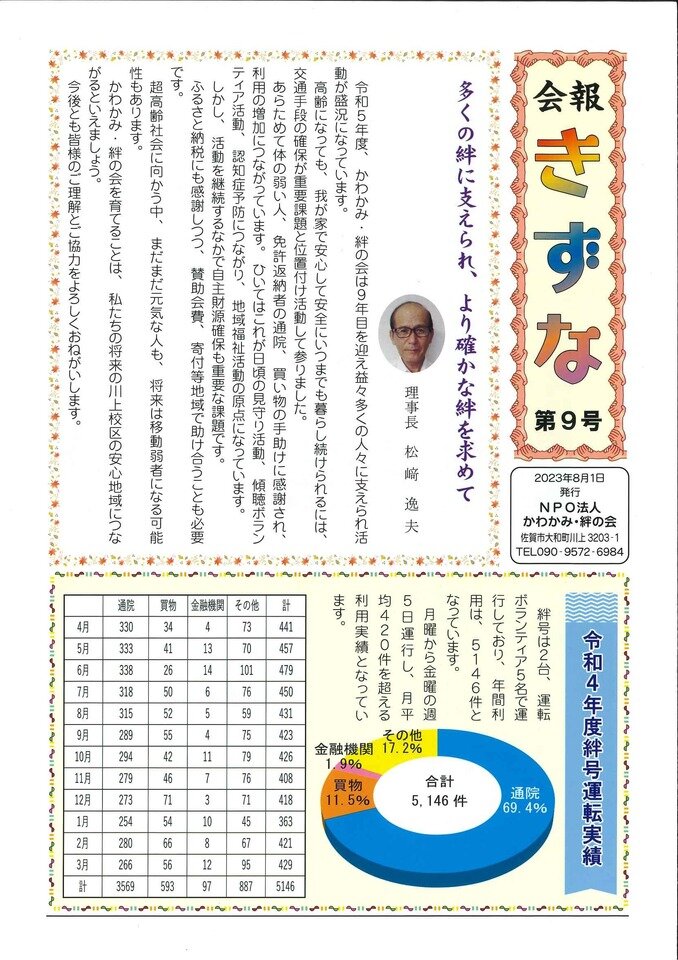 会報
きずな
第9号
2023年8月1日
発行
NPO法人
かわかみ・絆の会
佐賀市大和町川上3203-1
TEL090-9572-6984
多くの絆に支えられ、より確かな絆を求めて
理事長 松﨑 逸夫
令和5年度、かわかみ・絆の会は9年目を迎え益々多くの人々に支えられ活
動が盛況になっています。
高齢になっても、我が家で安心して安全にいつまでも暮らし続けられるには、
交通手段の確保が重要課題と位置付け活動して参りました。
あらためて体の弱い人、免許返納者の通院、買い物の手助けに感謝され、
利用の増加につながっています。ひいてはこれが日頃の見守り活動、傾聴ボラン
ティア活動、認知症予防につながり、地域福祉活動の原点になっています。
しかし、活動を継続するなかで自主財源確保も重要な課題です。
ふるさと納税にも感謝しつつ、賛助会費、寄付等地域で助け合うことも必要
です。
超高齢社会に向かう中、まだまだ元気な人も、将来は移動弱者になる可能
性もあります。
かわかみ・絆の会を育てることは、私たちの将来の川上校区の安心地域につな
がるといえましょう。
今後とも皆様のご理解とご協力をよろしくおねがいします。
令和4年度絆号運転実績
絆号は2台、運転
ボランティア5名で運
行しており、年間利
用は、5146件と
なっています。
月曜から金曜の週
5日運行し、月平
均420件を超える
利用実績となってい
ます。
その他
17.2%
金融機関
1.9%
買物
11.5%
合計
5,146件
通院
69.4%
通院 買物 金融機関 その他 計
4月 330 34 4 73 441
5月 333 41 13 70 457
6月 338 26 14 101 479
7月 318 50 6 76 450
8月 315 52 5 59 431
9月 289 55 4 75 423
10月 294 42 11 79 426
11月 279 46 7 76 408
12月 273 71 3 71 418
1月 254 54 10 45 363
2月 280 66 8 67 421
3月 266 56 12 95 429
計 3569 593 97 887 5146